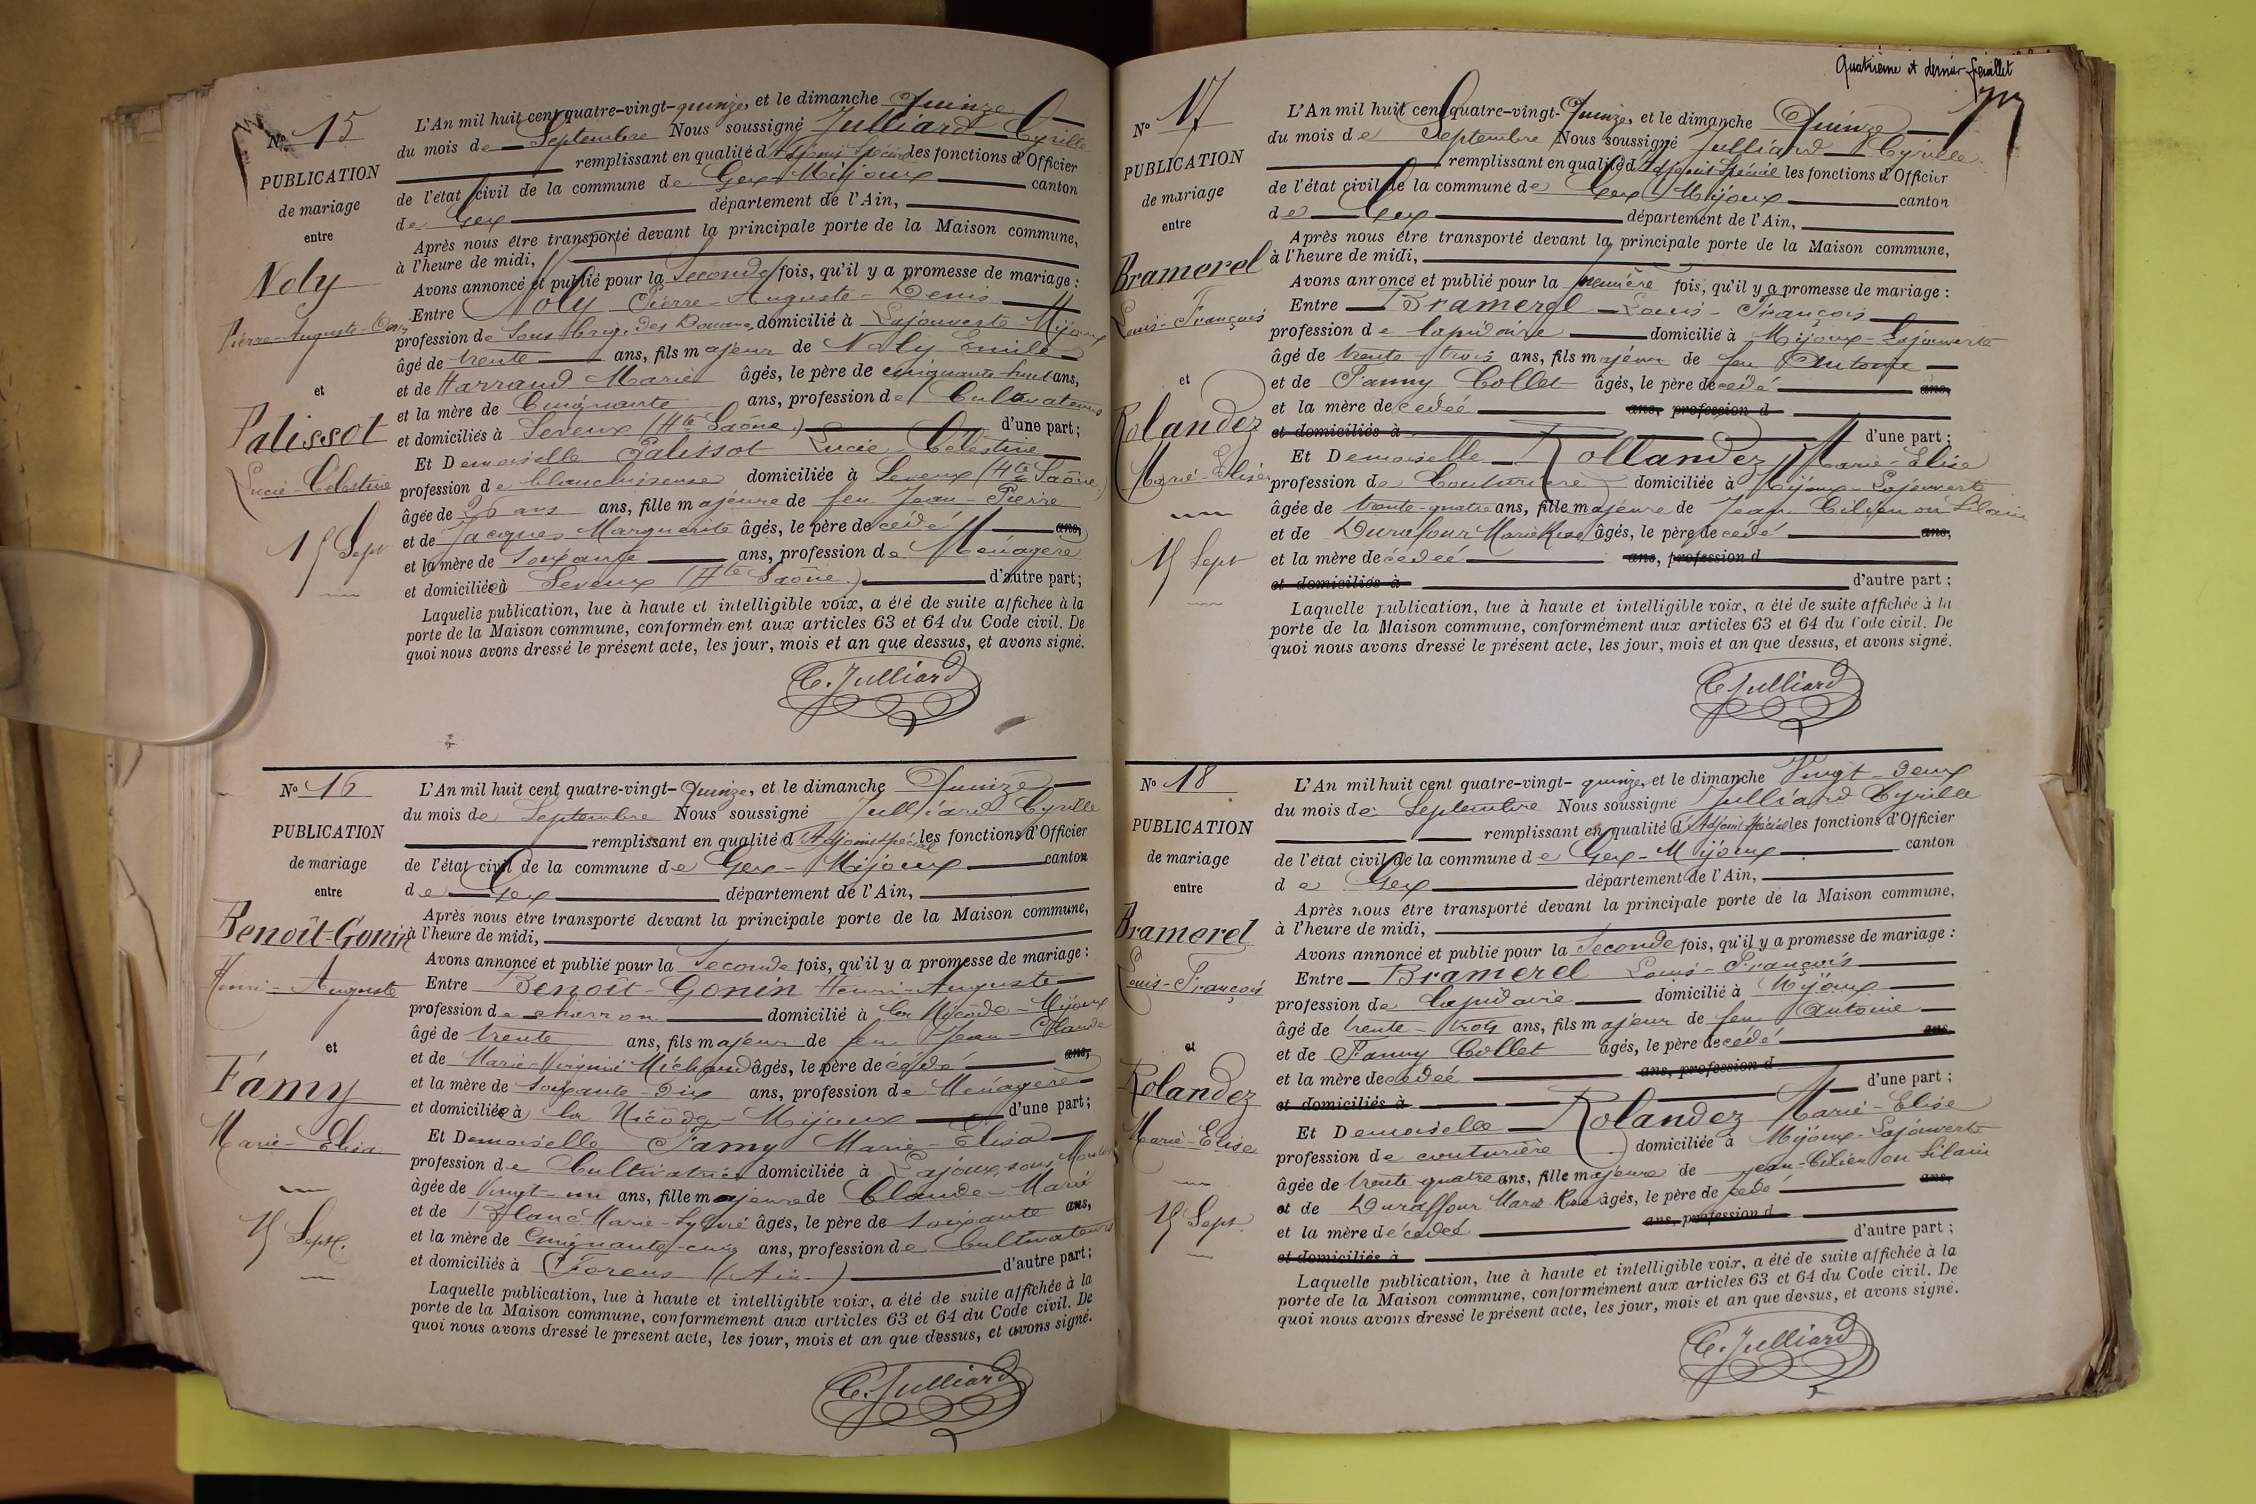 Nº 15
PUBLICATION
de mariage
entre
Noly
Pierre-Auguste-Denis
et
Palissot
Lucie-Célestine
15 Sept
L'An mil huit cent quatre-vingt-quinze, et le dimanche Quinze
du mois de Septembre Nous soussigné Julliard Cyrille
remplissant en qualité d'Adjoint Spécial les fonctions d'Officier
de l'état civil de la commune de Gex-Mijoux canton
de Gex département de l'Ain,
Après nous être transporté devant la principale porte de la Maison commune,
à l'heure de midi,
Avons annoncé et publié pour la Seconde fois, qu'il y a promesse de mariage :
Entre Noly Pierre-Auguste-Denis
profession de Sous Brig. des Douanes domicilié à Lajouverte-Mijoux
âgé de trente ans, fils majeur de Noly Emile
et de Harraud Marie âgés, le père de cinquante huit ans,
et la mère de Cinquante ans, profession de Cultivateurs
et domiciliés à Seveux (Hte Saône) d'une part ;
Et Demoiselle Palissot Lucie Célestine
profession de blanchisseuse domiciliée à Seveux (Hte Saône)
âgée de 26 ans ans, fille majeure de feu Jean-Pierre
et de Jacques Marguerite âgés, le père décédé ans,
et la mère de soixante ans, profession de Ménagère
et domiciliés à Seveux (Hte Saône) d'autre part ;
Laquelle publication, lue à haute et intelligible voix, a été de suite affichée à la
porte de la Maison commune, conformément aux articles 63 et 64 du Code civil. De
quoi nous avons dressé le présent acte, les jour, mois et an que dessus, et avons signé.
C. Julliard
Nº 16
PUBLICATION
de mariage
entre
Benoît-Gonin
Henri-Auguste
et
Famy
Marie-Elisa
15 Sept.
L'An mil huit cent quatre-vingt-Quinze, et le dimanche Quinze
du mois de Septembre Nous soussigné Julliard Cyrille
remplissant en qualité d'Adjoint spécial les fonctions d'Officier
de l'état civil de la commune de Gex-Mijoux canton
de Gex département de l'Ain,
Après nous être transporté devant la principale porte de la Maison commune,
à l'heure de midi,
Avons annoncé et publié pour la Seconde fois, qu'il y a promesse de mariage :
Entre Benoit-Gonin Henri-Auguste
profession de charron domicilié à la Nicode-Mijoux
âgé de trente ans, fils majeur de feu Jean-Claude
et de Marie-Virginie Michaud âgés, le père décédé ans,
et la mère de soixante-dix ans, profession de Ménagère
et domiciliée à la Nicode-Mijoux d'une part ;
Et Demoiselle Famy Marie-Elisa
profession de Cultivatrice domiciliée à Lajoux, sous
âgée de Vingt-un ans, fille majeure de Claude-Marie
et de Blanc Marie-Sylvie âgés, le père de soixante ans,
et la mère de Cinquante-cinq ans, profession de Cultivateurs
et domiciliés à (Ain) d'autre part ;
Laquelle publication, lue à haute et intelligible voix, a été de suite affichée à la
porte de la Maison commune, conformément aux articles 63 et 64 du Code civil. De
quoi nous avons dressé le présent acte, les jour, mois et an que dessus, et avons signé.
C. Julliard
Quatrième et dernier feuillet
Nº 17
PUBLICATION
de mariage
entre
Bramerel
Louis-François
et
Rolandez
Marie-Elise
15 Sept
L'An mil huit cent quatre-vingt-Quinze, et le dimanche Quinze
du mois de Septembre Nous soussigné Julliard Cyrille
remplissant en qualité d'Adjoint Spécial les fonctions d'Officier
de l'état civil de la commune de Gex-Mijoux canton
de Gex département de l'Ain,
Après nous être transporté devant la principale porte de la Maison commune,
à l'heure de midi,
Avons annoncé et publié pour la première fois, qu'il y a promesse de mariage :
Entre Bramerel Louis-François
profession de lapidaire domicilié à Mijoux-Lajouverte
âgé de trente-trois ans, fils majeur de feu Antoine
et de Fanny Collet âgés, le père décédé ans,
et la mère décédée ans, profession d
et domiciliés à d'une part ;
Et Demoiselle Rollandez Marie-Elise
profession de Couturière domiciliée à Mijoux-Lajouverte
âgée de trente-quatre ans, fille majeure de Jean-Cilien ou Silain
et de Durafour Marie Rose âgés, le père décédé ans,
et la mère décédée ans, profession d
et domiciliés à d'autre part ;
Laquelle publication, lue à haute et intelligible voix, a été de suite affichée à la
porte de la Maison commune, conformément aux articles 63 et 64 du Code civil. De
quoi nous avons dressé le présent acte, les jour, mois et an que dessus, et avons signé.
C. Julliard
Nº 18
PUBLICATION
de mariage
entre
Bramerel
Louis-François
et
Rolandez
Marie-Elise
15 Sept.
L'An mil huit cent quatre-vingt-quinze, et le dimanche Vingt-deux
du mois de Septembre Nous soussigné Julliard Cyrille
remplissant en qualité d'Adjoint spécial les fonctions d'Officier
de l'état civil de la commune de Gex-Mijoux canton
de Gex département de l'Ain,
Après nous être transporté devant la principale porte de la Maison commune,
à l'heure de midi,
Avons annoncé et publié pour la Seconde fois, qu'il y a promesse de mariage :
Entre Bramerel Louis-François
profession de lapidaire domicilié à Mijoux
âgé de trente-trois ans, fils majeur de feu Antoine
et de Fanny Collet âgés, le père décédé ans,
et la mère décédée ans, profession d
et domiciliés à d'une part ;
Et Demoiselle Rolandez Marie-Elise
profession de couturière domiciliée à Mijoux-Lajouverte
âgée de trente quatre ans, fille majeure de Jean-Cilien ou Silain
et de Duraffour Marie Rose âgés, le père décédé ans,
et la mère décédée ans, profession d
et domiciliés à d'autre part ;
Laquelle publication, lue à haute et intelligible voix, a été de suite affichée à la
porte de la Maison commune, conformément aux articles 63 et 64 du Code civil. De
quoi nous avons dressé le présent acte, les jour, mois et an que dessus, et avons signé.
C. Julliard